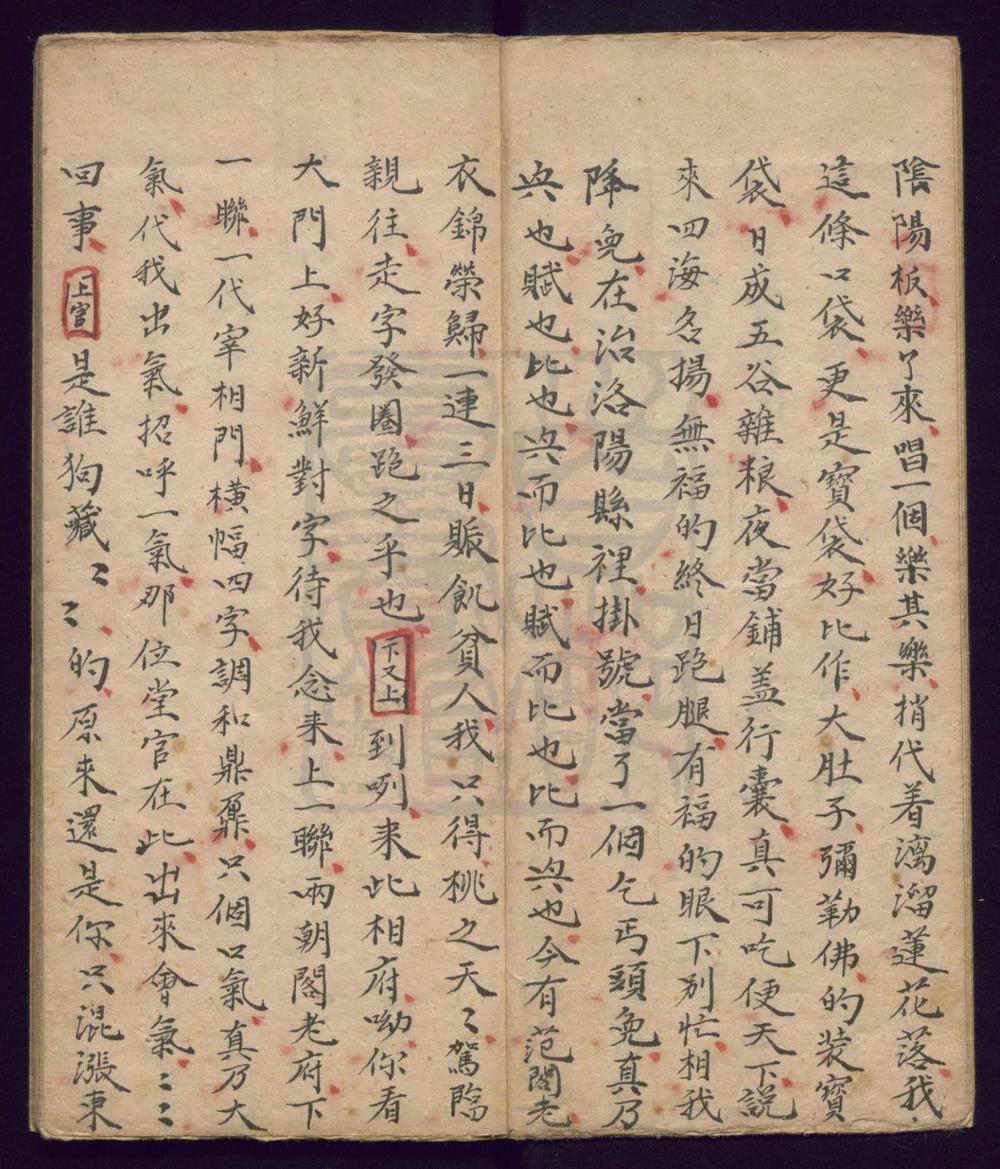 陰陽板樂了來唱一個樂其樂梢代着漓溜蓮花落我
這條口袋更是寶袋好比作大肚子彌勒佛的裝寶
袋日成五谷雜粮夜當鋪盖行囊真可吃便天下説
來四海名揚無福的終日跑腿有福的眼下别忙相我
降免在治洛陽縣裡掛號當了一個乞丐頭免真乃
兴也賦也比也兴而比也賦而比也比而兴也今有范閣老
衣錦榮歸一連三日賑飢貧人我只得桃之夭〻駕臨
親往走字發圈跑之乎也下又上到咧来此相府呦你看
大門上好新鮮對字待我念来上一聯兩朝閣老府下
一聯一代宰相門橫幅四字調和鼎鼐只個口氣真乃大
氣代我出氣招呼一氣那位堂官在此出來會氣〻〻
回事上官是誰狗藏〻〻的原來還是你只混漲東